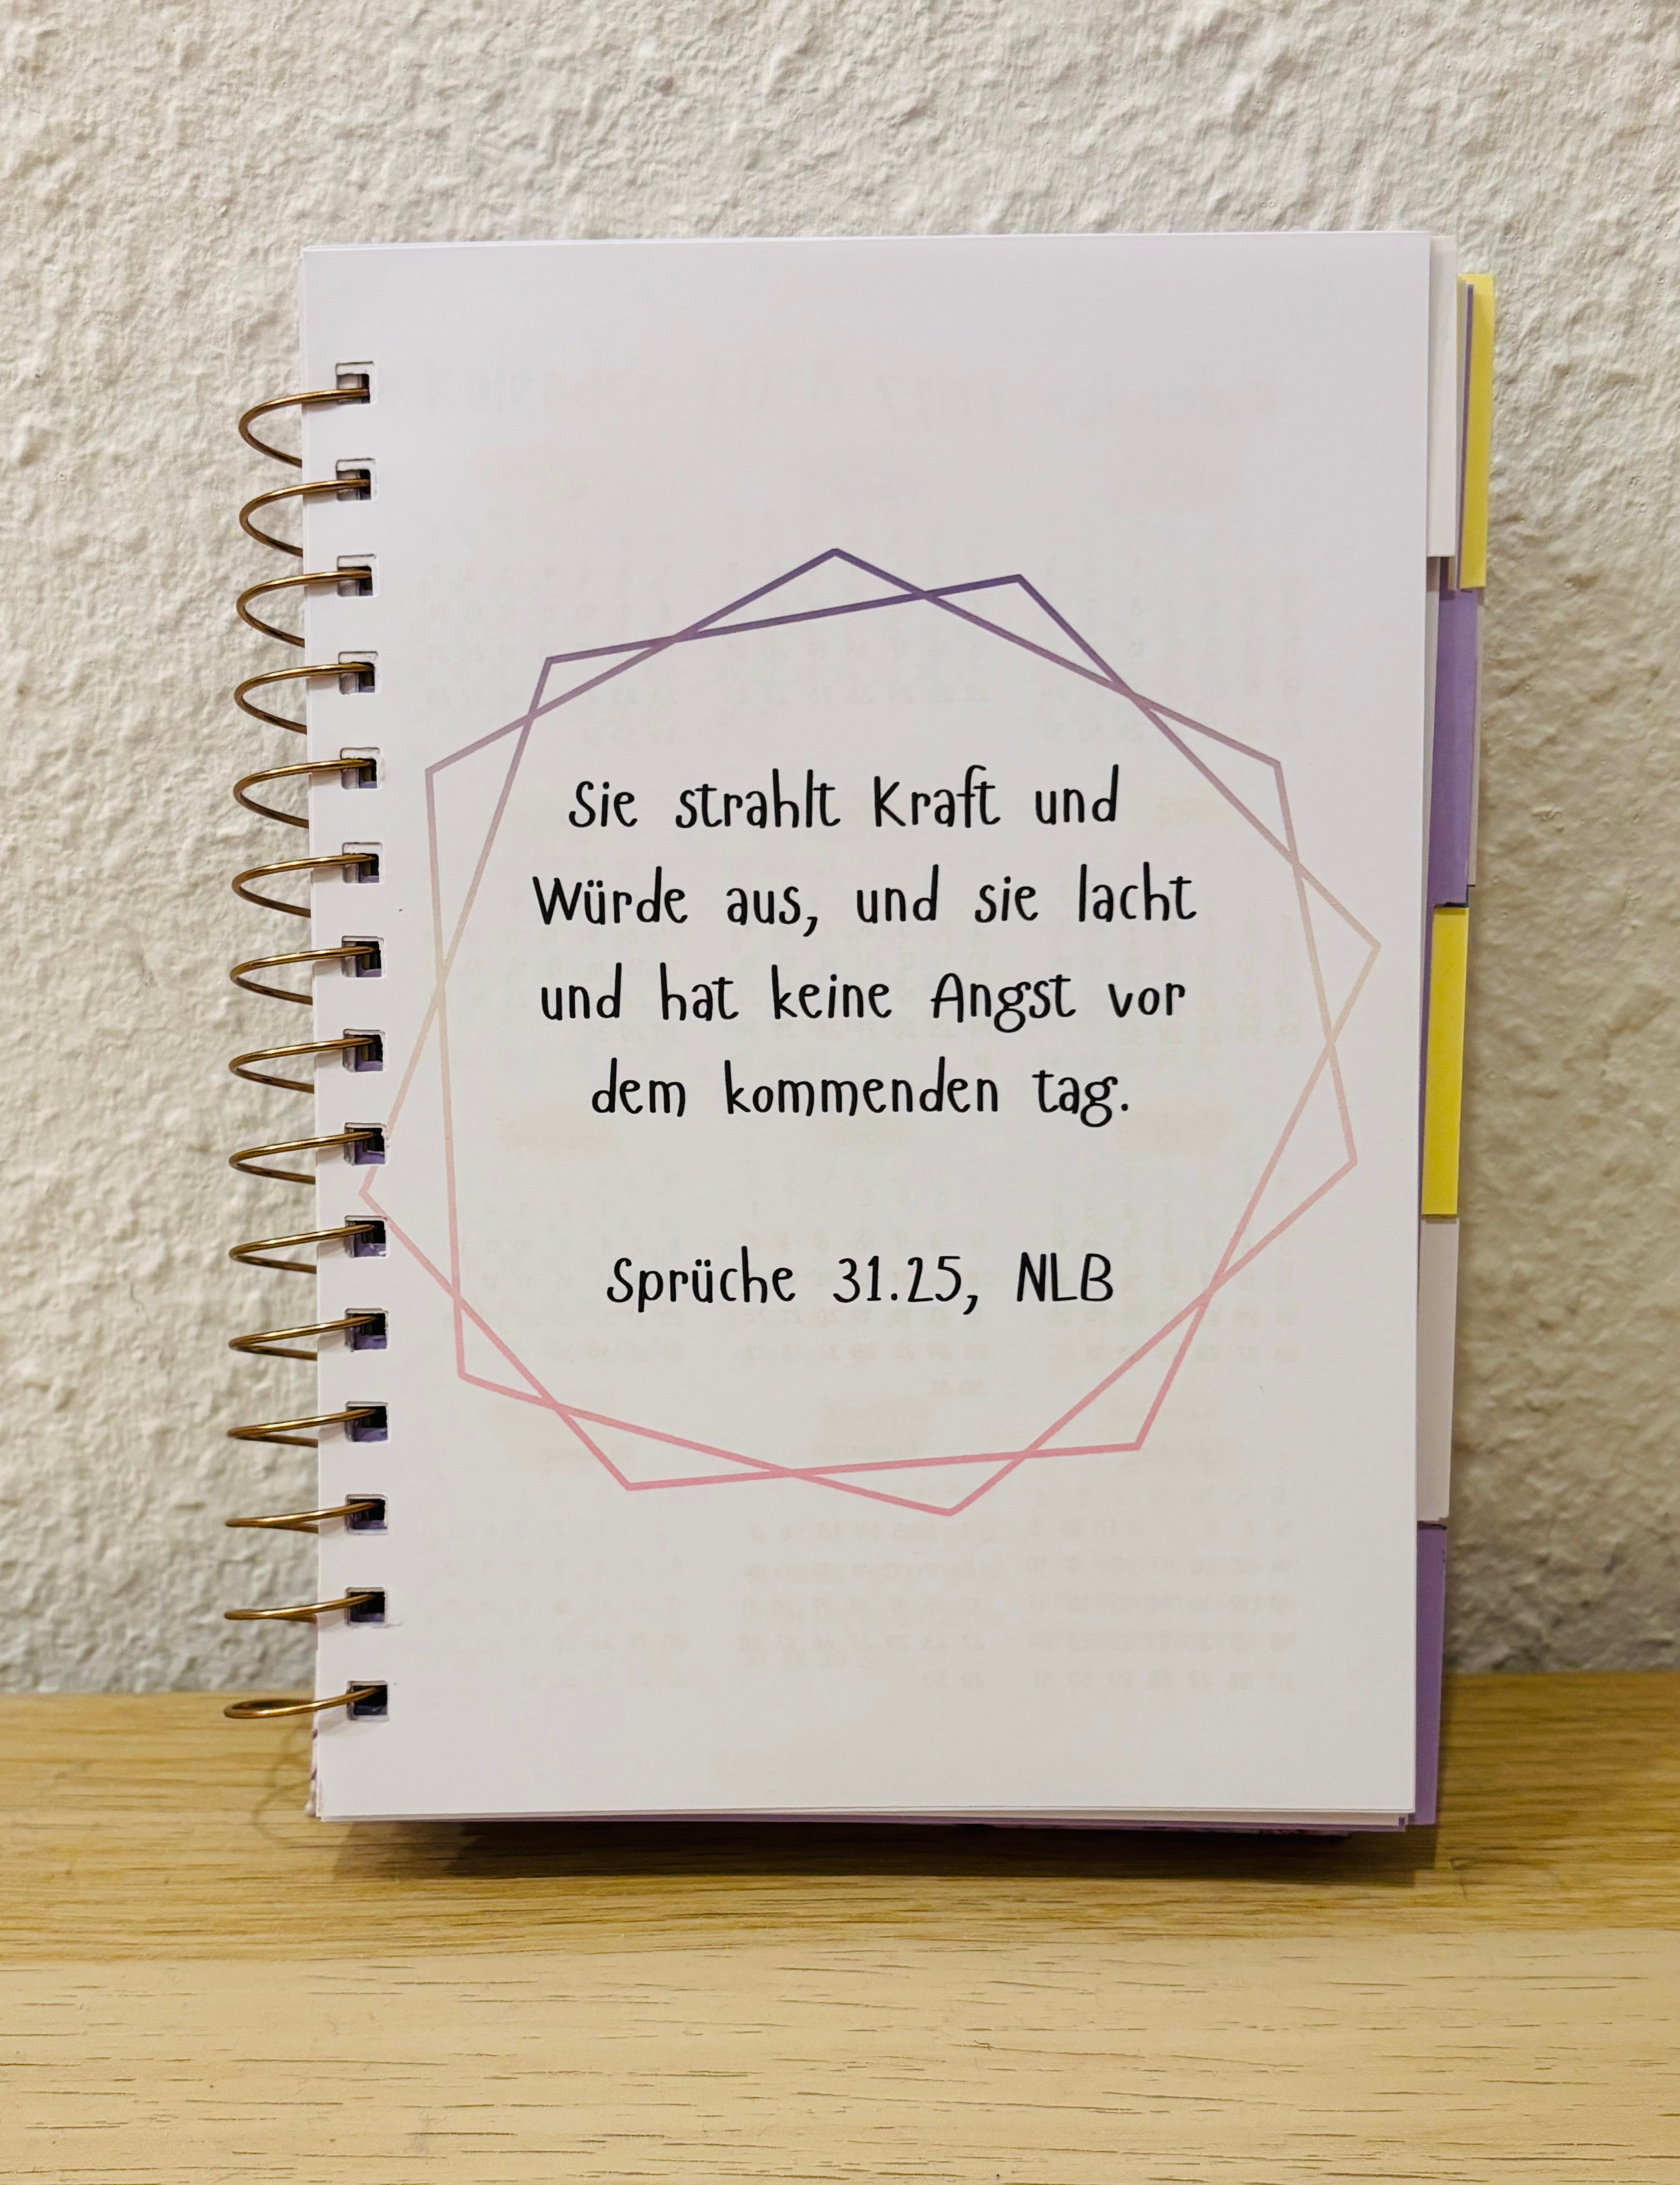 Sie strahlt Kraft und
Würde aus, und sie lacht
und hat keine Angst vor
dem kommenden tag.
Sprüche 31.25, NLB